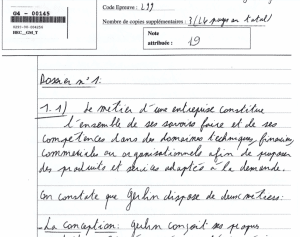 04 - 00145
HEC_GM_T
Code Epreuve : L99
Nombre de copies supplémentaires : 3/(4 pages en total)
Note
attribuée : 19
Dossier n° 1.
1.1) Le métier d'une entreprise constitue
l'ensemble de ses savoirs faire et de ses
compétences dans des domaines techniques, financiers
commerciales ou organisationnels afin de proposer
des produits et services adaptés à la demande.
On constate que Gerlin dispose de deux métiers:
- La conception: Gerlin conçoit ses propres